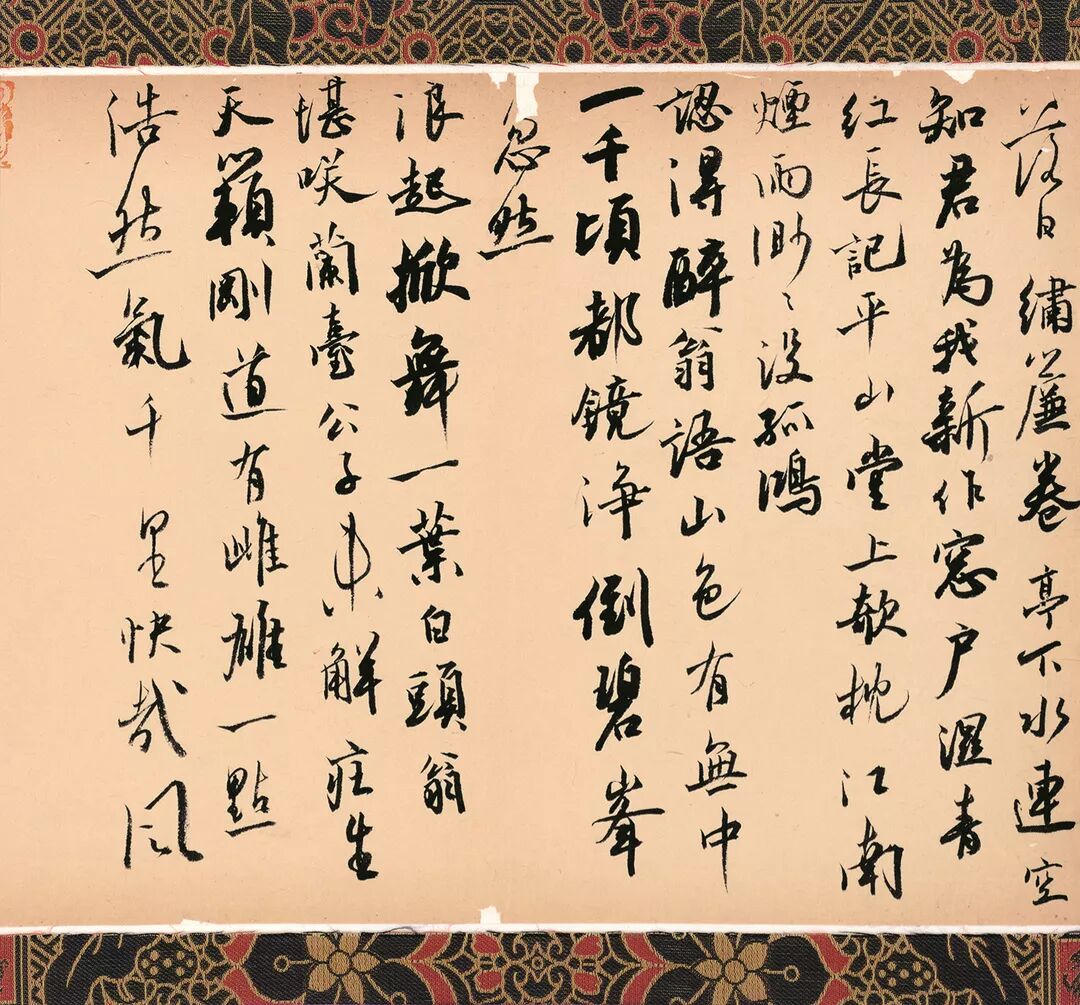 落日繡簾卷亭下水連空
知君為我新作窓戶濕青
紅長記平山堂上欹枕江南
煙雨渺〻没孤鴻
認得醉翁語山色有無中
一千頃都鏡淨倒碧峯
忽然
浪起掀舞一葉白頭翁
堪咲蘭臺公子未解莊生
天籟剛道有雌雄一點
浩然氣千里快哉風